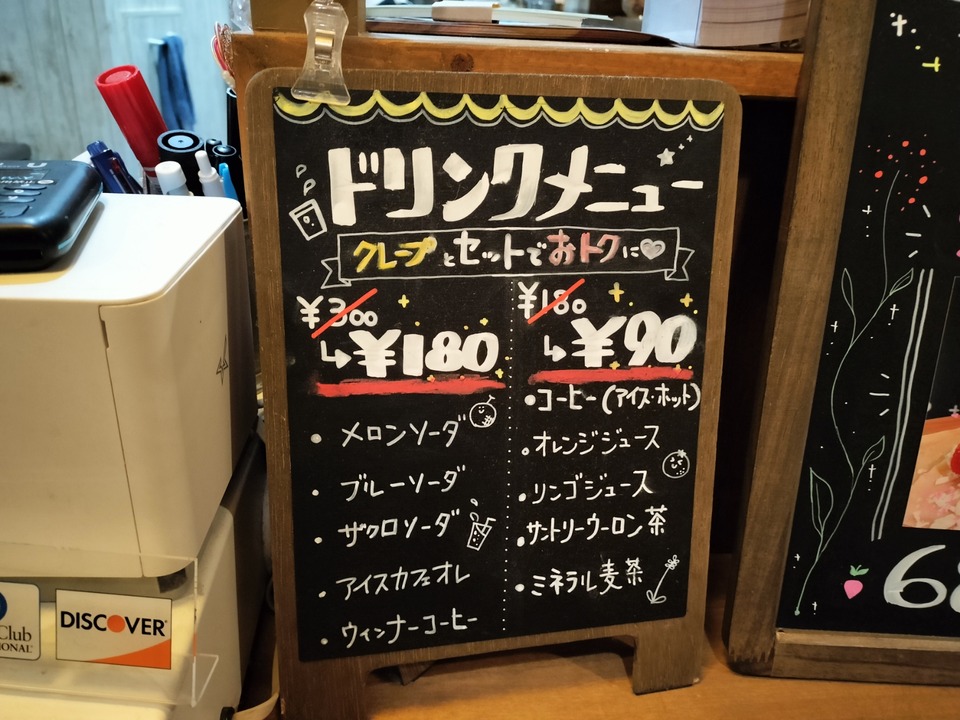 ドリンクメニュー
クレープとセットでおトクに
¥300
↳¥180
・メロンソーダ
・ブルーソーダ
・ザクロソーダ
・アイスカフェオレ
・ウィンナーコーヒー
¥180
↳¥90
・コーヒー(アイス・ホット)
・オレンジジュース
・リンゴジュース
・サントリーウーロン茶
・ミネラル麦茶
Club
DISCOVER
68